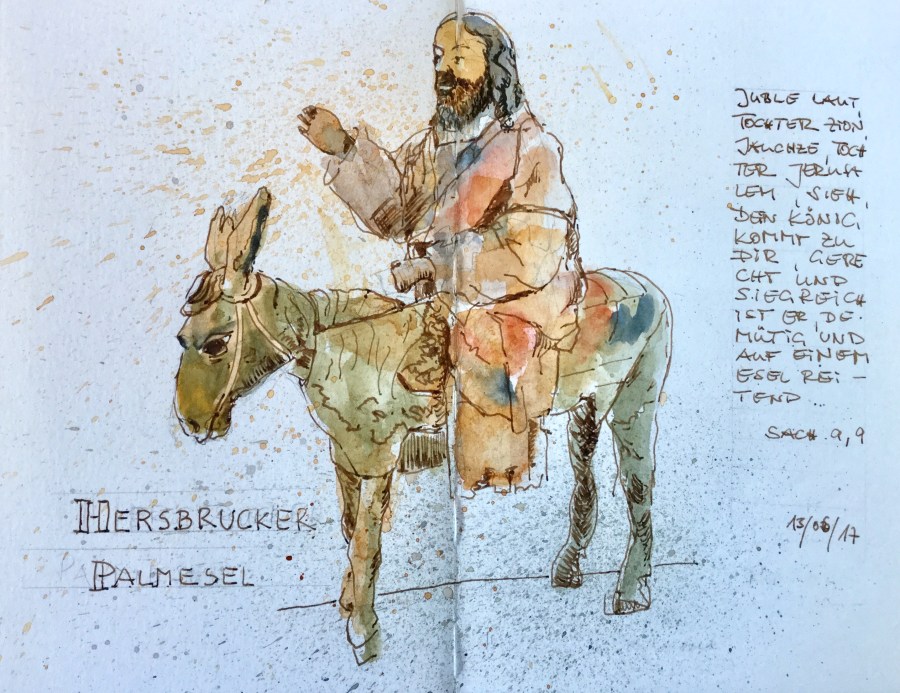 JUBLE LAUT,
TOCHTER ZION,
JAUCHZE, TOCH
TER JERUSA
LEM, SIEH,
DEIN KÖNIG,
KOMMT ZU
DIR, GERE
CHT UND
SIEGREICH
IST ER, DE-
MÜTIG UND
AUF EINEM
ESEL REI-
TEND...
SACH. 9,9
HERSBRUCKER
PALMESEL
13/06/17